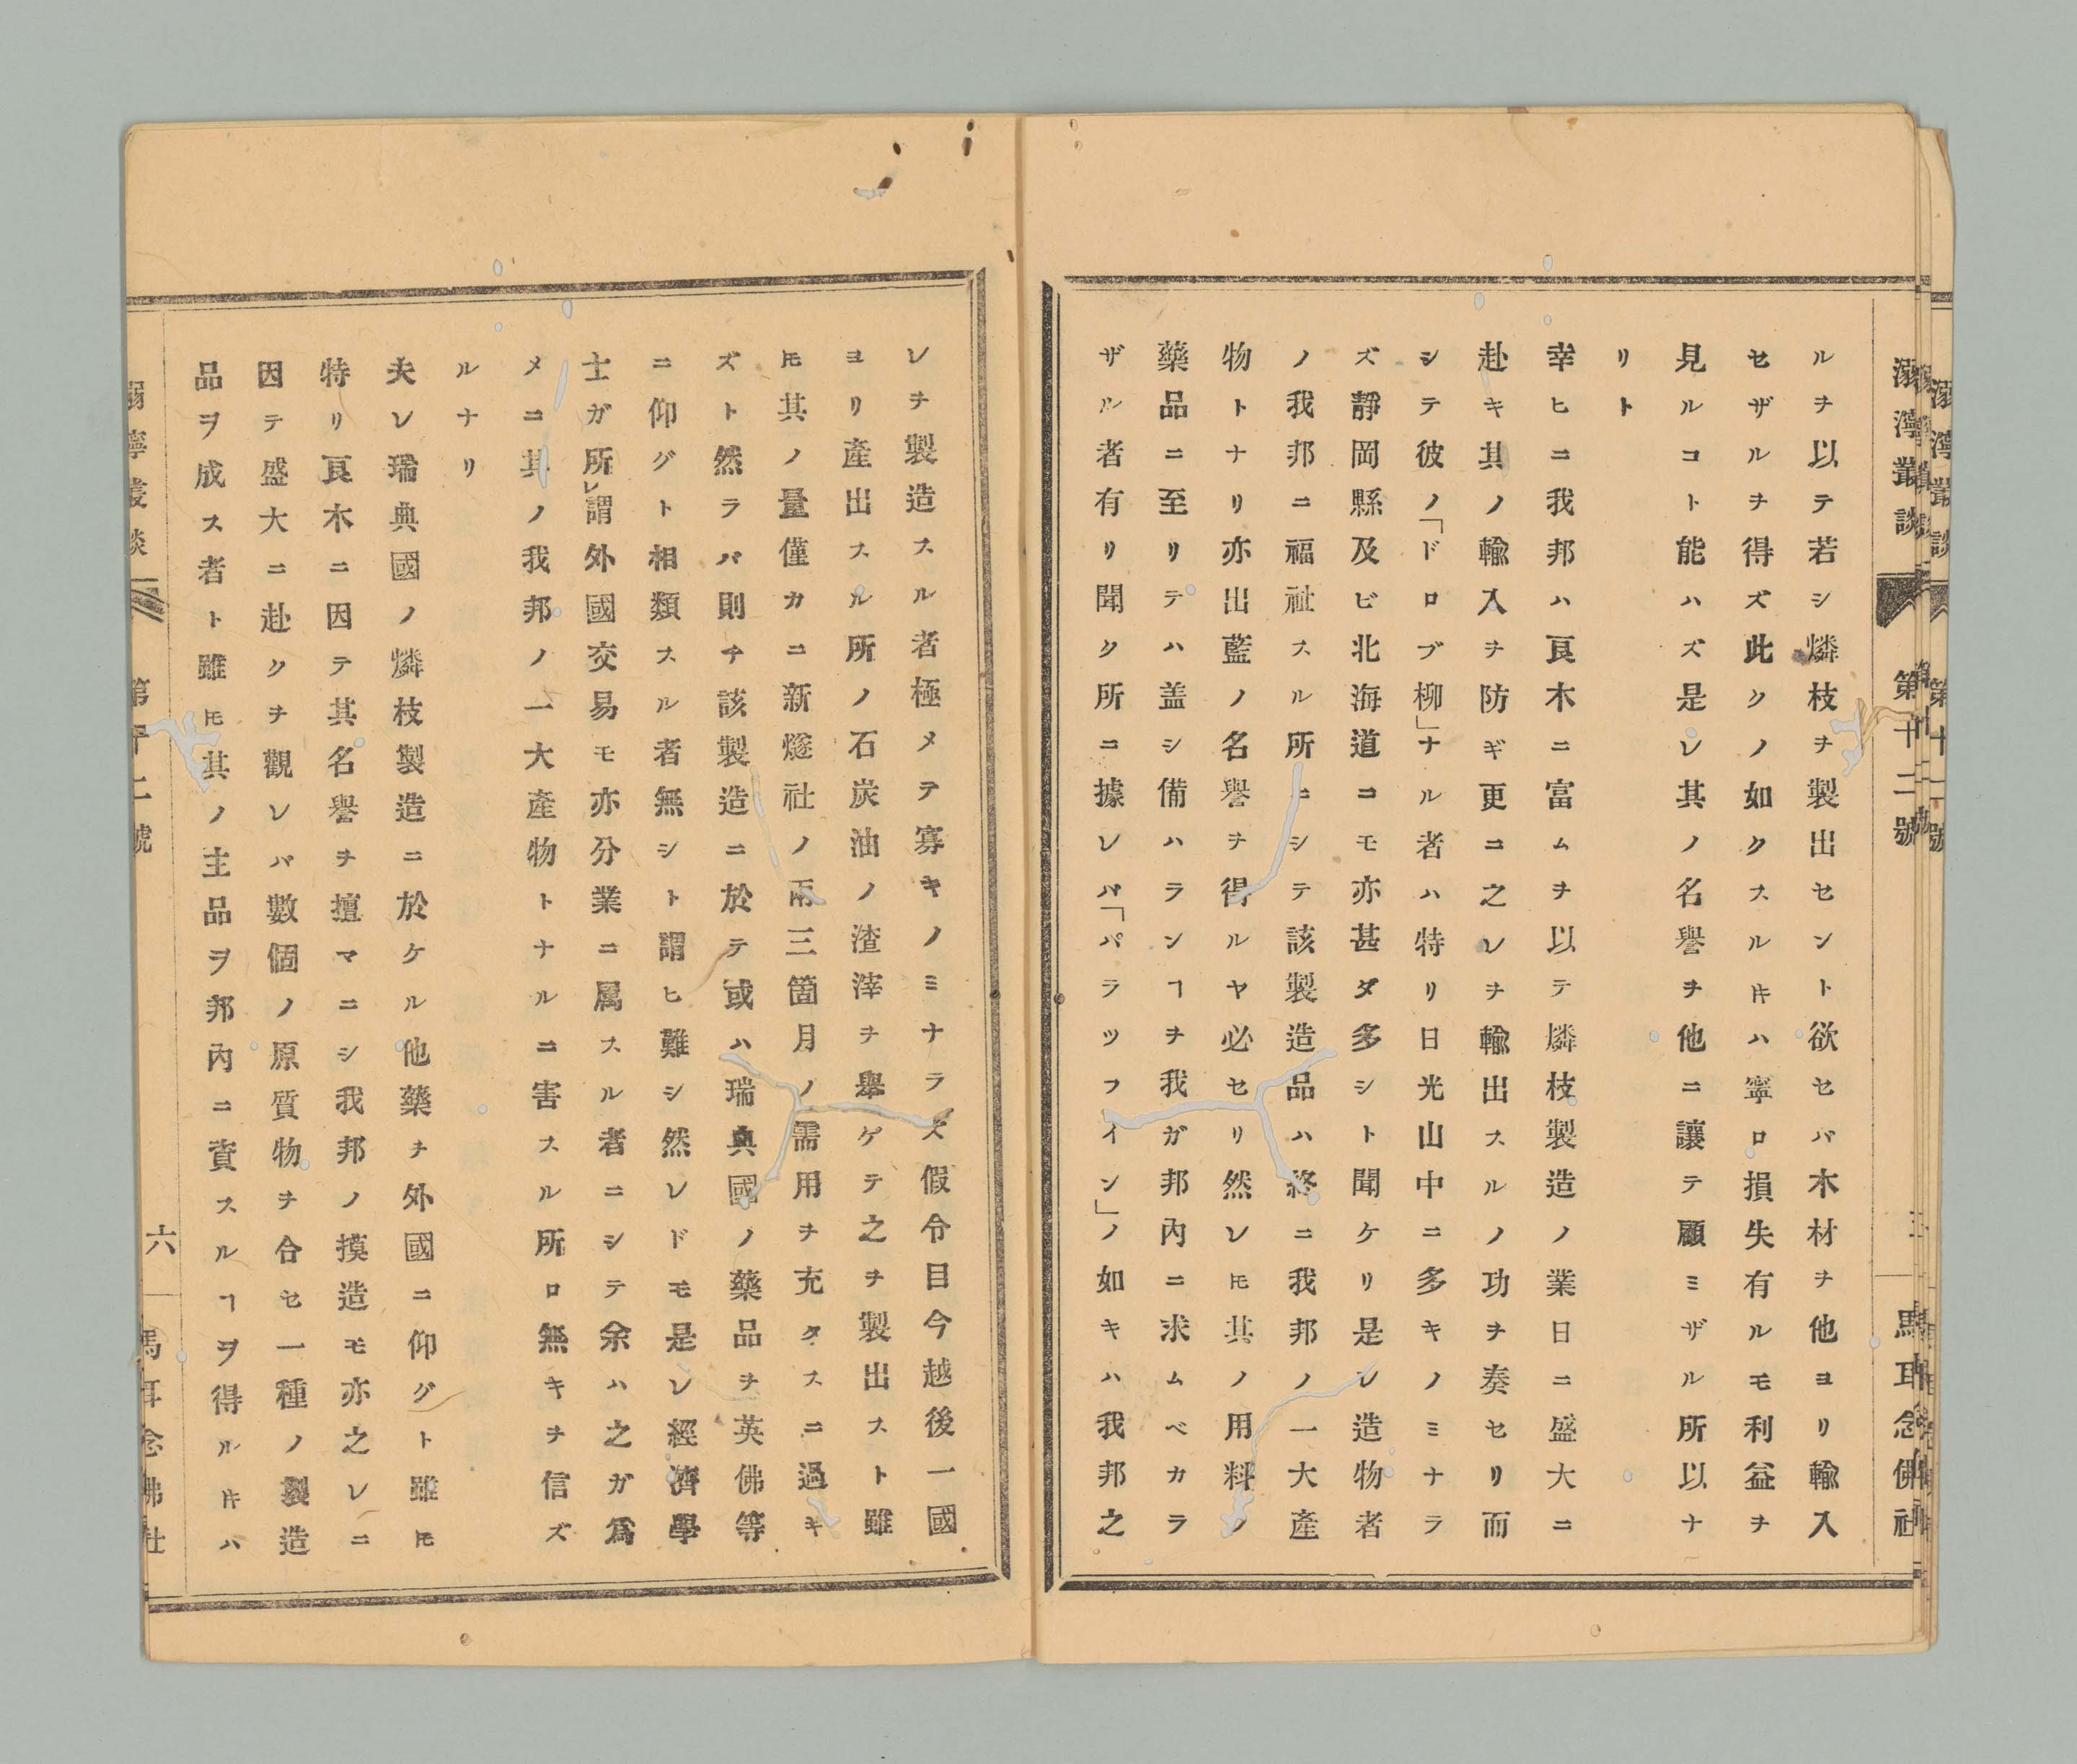 溺濘叢談 第十二號 馬耳念佛社
ルヲ以テ若シ燐枝ヲ製出セント欲セバ木材ヲ他ヨリ輸入
セザルヲ得ズ此クノ如クスルヰハ寧ロ損失有ルモ利益ヲ
見ルコト能ハズ是レ其ノ名譽ヲ他ニ讓テ顧ミザル所以ナ
リト
幸ヒニ我邦ハ良木ニ富ムヲ以テ燐枝製造ノ業日ニ盛大ニ
赴キ其ノ輸入ヲ防ギ更ニ之レヲ輸出スルノ功ヲ奏セリ而
シテ彼ノ「ドロブ柳」ナル者ハ特リ日光山中ニ多キノミナラ
ズ靜岡縣及ビ北海道ニモ亦甚ダ多シト聞ケリ是レ造物者
ノ我邦ニ福祉スル所ニシテ該製造品ハ終ニ我邦ノ一大產
物トナリ亦出藍ノ名譽ヲ得ルヤ必セリ然レ𪜈其ノ用料ノ
藥品ニ至リテハ盖シ備ハランヿヲ我ガ邦內ニ求ムベカラ
ザル者有リ聞ク所ニ據レバ「パラツフイン」ノ如キハ我邦之
レヲ製造スル者極メテ寡キノミナラズ假令目今越後一國
ヨリ產出スル所ノ石炭油ノ渣滓ヲ舉ゲテ之ヲ製出スト雖
𪜈其ノ量僅カニ新燧社ノ兩三箇月ノ需用ヲ充タスニ過キ
ズト然ラバ則チ該製造ニ於テ或ハ瑞典國ノ藥品ヲ英佛等
ニ仰グト相類スル者無シト謂ヒ難シ然レドモ是レ經濟學
士ガ所レ謂外國交易モ亦分業ニ属スル者ニシテ余ハ之ガ爲
メニ其ノ我邦ノ一大產物トナルニ害スル所ロ無キヲ信ズ
ルナリ
夫レ瑞典國ノ燐枝製造ニ於ケル他藥ヲ外國ニ仰グト雖𪜈
特リ良木ニ因テ其名譽ヲ擅マニシ我邦ノ摸造モ亦之レニ
因テ盛大ニ赴クヲ觀レバ數個ノ原質物ヲ合セ一種ノ製造
品ヲ成ス者ト雖𪜈其ノ主品ヲ邦內ニ資スルヿヲ得ルヰハ
溺濘叢談 第十二號 六 馬耳念佛社